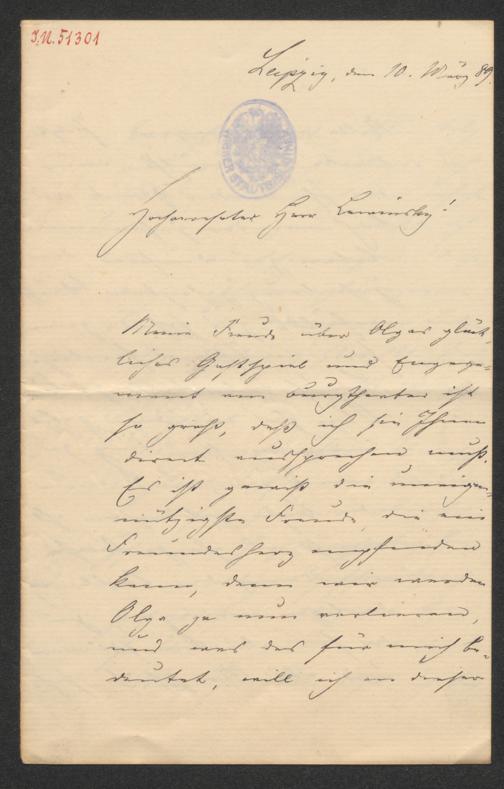 J.N. 51301
Leipzig, den 10. März 89.
WIENER STADTBIBLIOTHEK
Hochverehrter Herr Lewinsky!
Meine Freude über Olgas glück-
liches Gastspiel und Engage-
ment am Burgtheater ist
so groß, daß ich sie Ihnen
direct aussprechen muß.
Es ist gewiß die uneigen-
nützigste Freude, die ein
Freundesherz empfinden
kann, denn wir werden
Olga ja nun verlieren,
und was das für mich be-
deutet, will ich an dieser